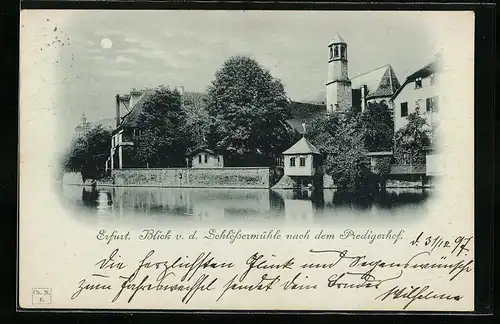 Erfurt. Blick v. d. Schlößermühle nach dem Predigerhof.
d. 31/12 97.
Die herzlichsten Glück und Segenswünsche
zum Jahreswechsel sendet dem Bruder
Wilhelmine
Ch. M.
E.